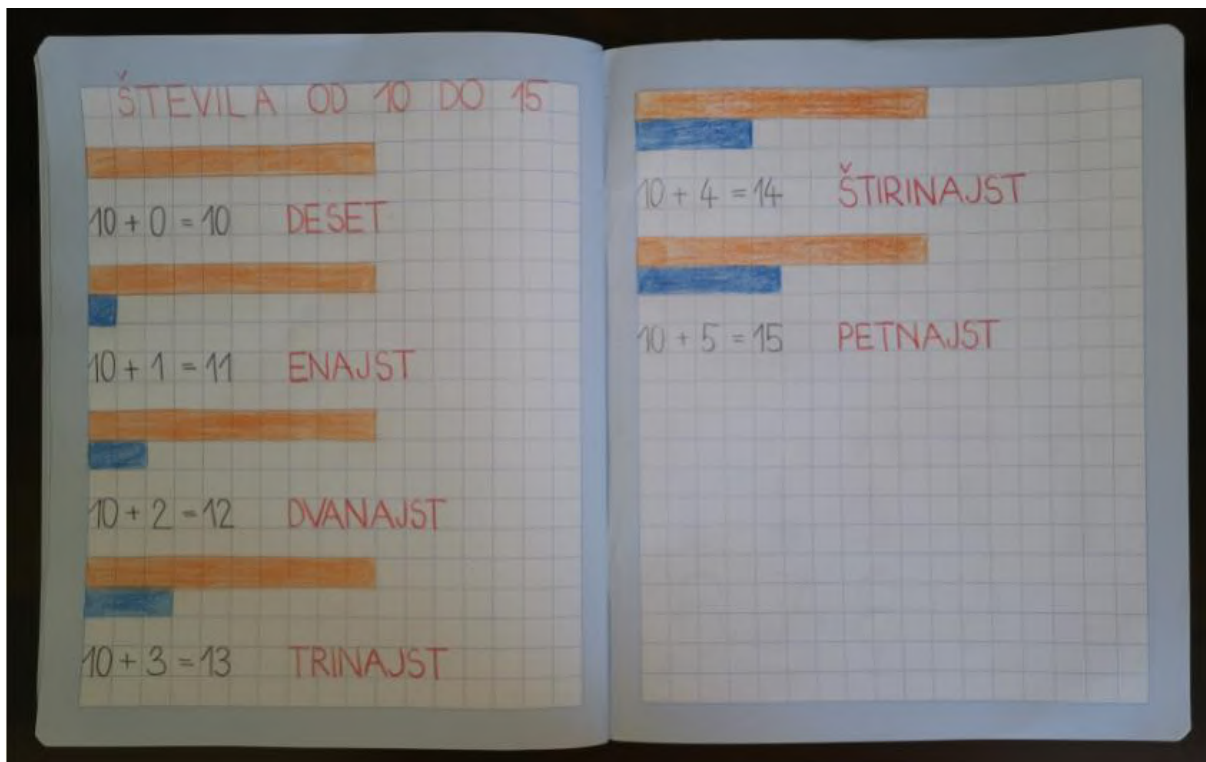 ŠTEVILA OD 10 DO 15
10 + 0 = 10 DESET
10 + 1 = 11 ENAJST
10 + 2 = 12 DVANAJST
10 + 3 = 13 TRINAJST
10 + 4 = 14 ŠTIRINAJST
10 + 5 = 15 PETNAJST